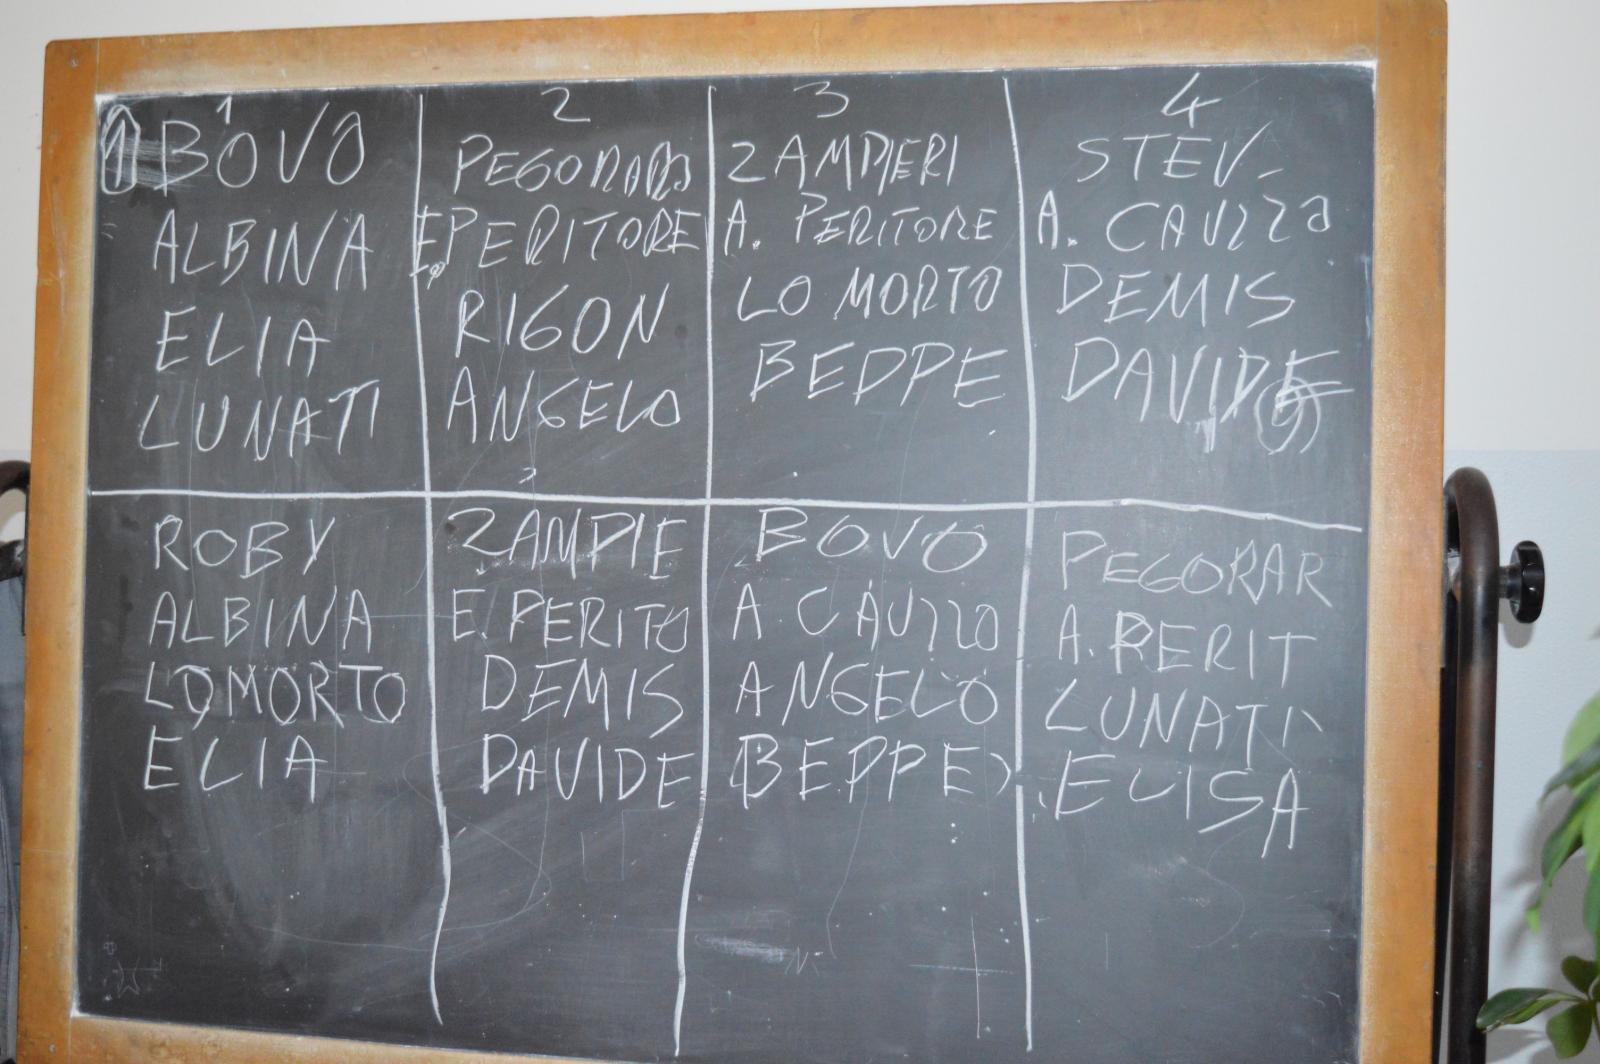 1 2 3 4
BOVO PEGORARO ZAMPIERI STEV.
ALBINA E. PERITORE A. PERITORE A. CAUZZO
ELIA RIGON LO MORTO DEMIS
LUNATI ANGELO BEPPE DAVIDE
ROBY ZAMPIE BOVO PEGORAR
ALBINA E. PERITO A. CAUZZO A. PERIT
LOMORTO DEMIS ANGELO LUNATI
ELIA DAVIDE (BEPPE) ELISA